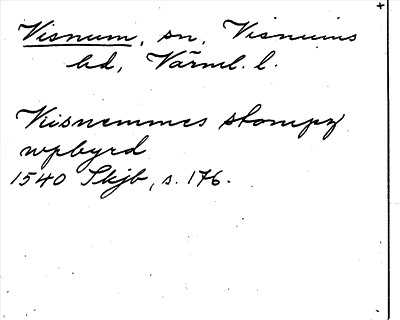 Visnum, sn, Visnums
hd, Värml. l.
Viisnemmes stompz
wpbyrd
1540 Skjb, s. 176.